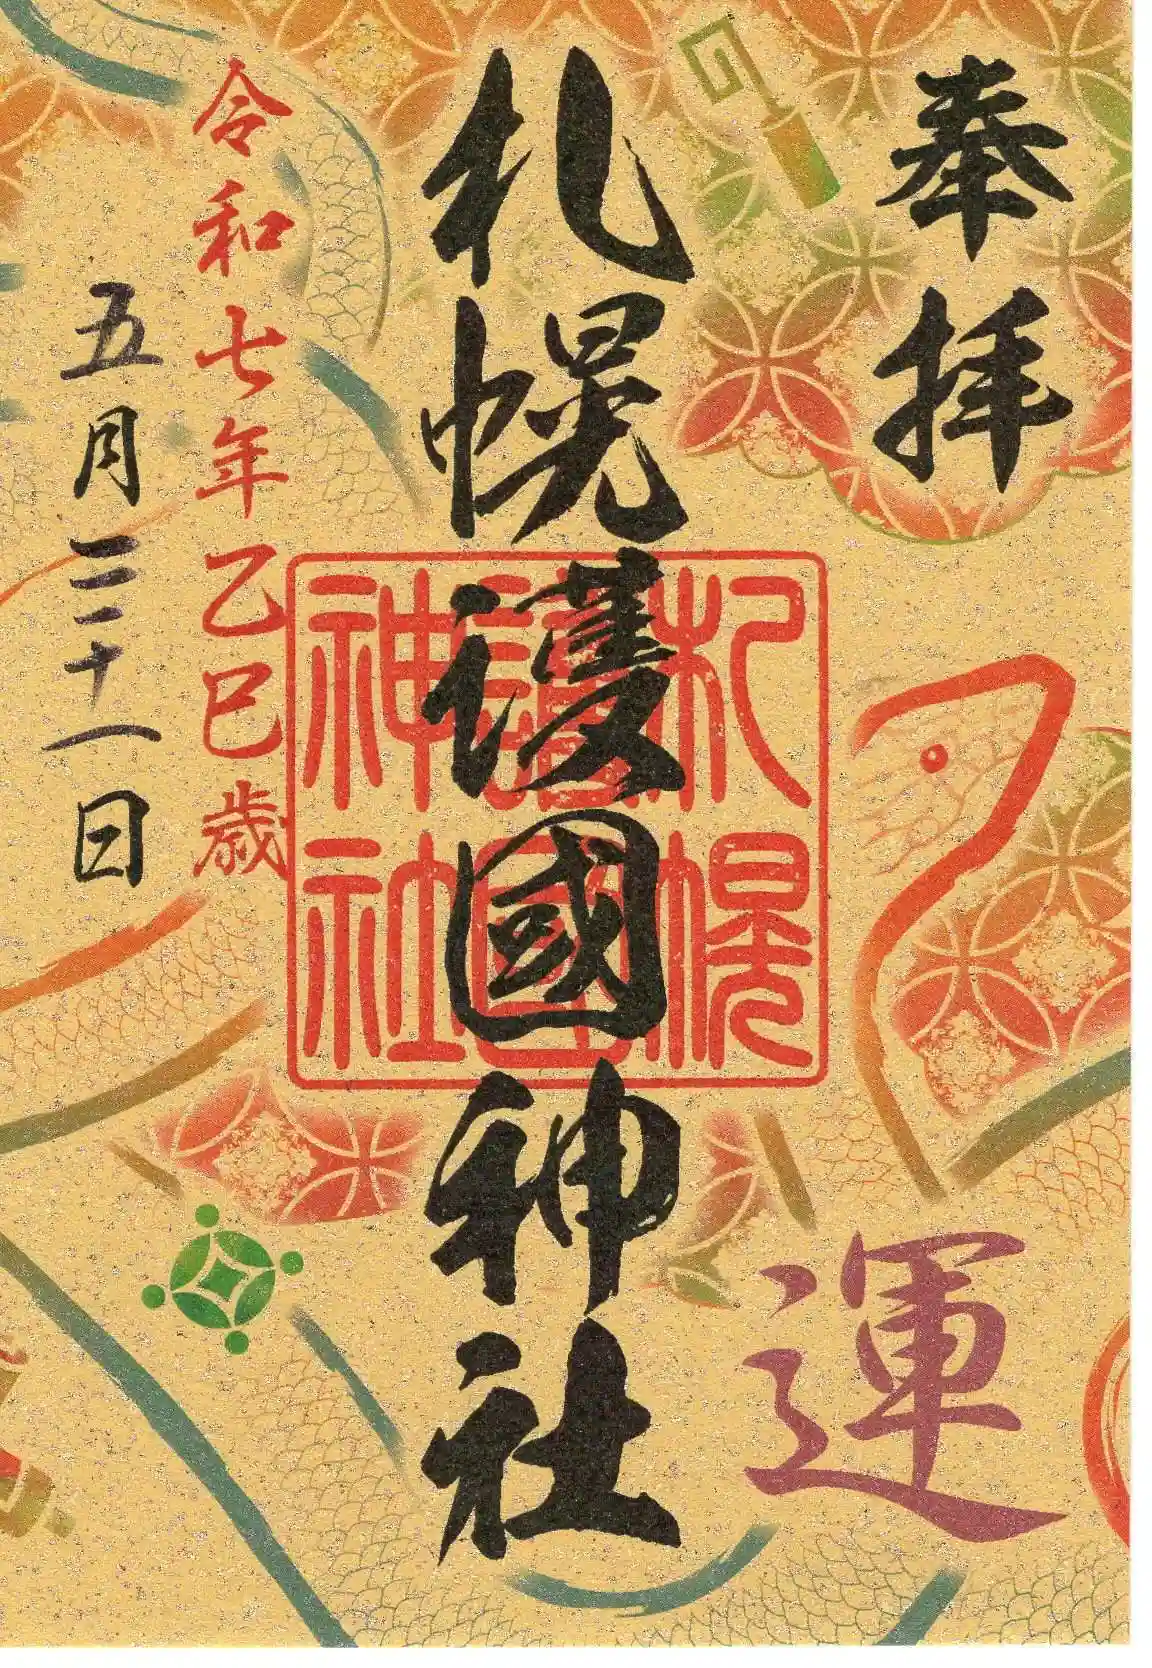 奉拝
運
札幌護國神社
札幌
護國
神社
令和七年乙巳歳
五月三十一日